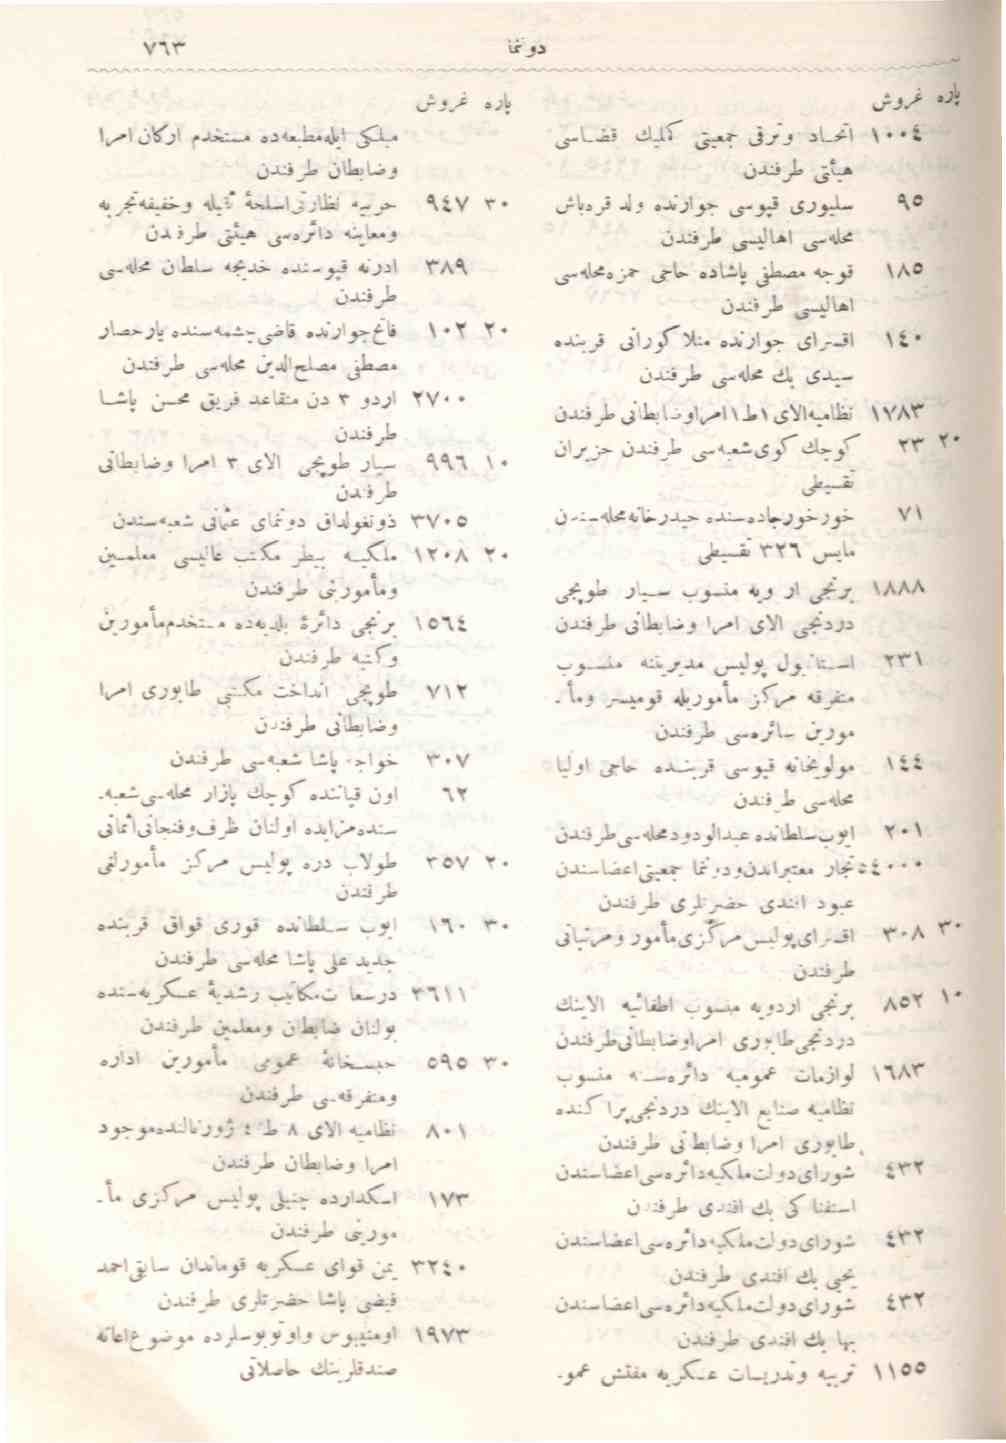 دوننما
٧٦٣
پاره غروش
١٠٠٤ اتحاد وترقی جمعیتی کملیك قضاسی
هیأتی طرفندن
٩٥ سلیوری قپوسی جوارنده ولد قره‌باش
محله‌سی اهالیسی طرفندن
١٨٥ قوجه مصطفی پاشاده حاجی حمزه محله‌سی
اهالیسی طرفندن
١٤٠ اقسرای جوارنده منلا کورانی قربنده
سیدی بك محله‌سی طرفندن
١٧٨٣ نظامیه الای ١ ط ١ امرا وضابطانی طرفندن
٢٠ ٢٣ کوچك کوی شعبه‌سی طرفندن حزیران
تقسیطی
٧١ خورخور جاده‌سنده حیدرخانه محله‌سندن
مایس ٣٢٦ تقسیطی
١٨٨٨ برنجی اردویه منسوب سیار طوپجی
دردنجی الای امرا وضابطانی طرفندن
٢٣١ استانبول پولیس مدیریتنه منسوب
متفرقه مرکز مأموریله قومیسر ومأ‌ـ
مورین سائره‌سی طرفندن
١٤٤ مولویخانه قپوسی قربنده حاجی اولیا
محله‌سی طرفندن
٢٠١ ایوب سلطانده عبدالودود محله‌سی طرفندن
٥٤٠٠٠ تجار معتبراندن ودوننما جمعیتی اعضاسندن
عبود افندی حضرتلری طرفندن
٣٠ ٣٠٨ اقسرای پولیس مرکزی مأمور ومرتباتی
طرفندن
١٠ ٨٥٢ برنجی اردویه منسوب اطفائیه الاینك
دردنجی طابوری امرا وضابطانی طرفندن
١٦٨٣ لوازمات عمومیه دائره‌سنه منسوب
نظامیه صنایع الاینك دردنجی پراکنده
طابوری امرا وضابطانی طرفندن
٤٣٢ شورای دولت ملکیه دائره‌سی اعضاسندن
استفناکی بك افندی طرفندن
٤٣٢ شورای دولت ملکیه دائره‌سی اعضاسندن
یحیی بك افندی طرفندن
٤٣٢ شورای دولت ملکیه دائره‌سی اعضاسندن
بها بك افندی طرفندن
١١٥٥ تربیه وتدریسات عسکریه مفتش عمو‌ـ
پاره غروش
میلکی ایله مطبعه‌ده مستخدم ارکان امرا
وضابطان طرفندن
٣٠ ٩٤٧ حربیه نظارتی اسلحهٔ ثقیله وخفیفه تجربه
ومعاینه دائره‌سی هیئتی طرفندن
٣٨٩ ادرنه قپوسنده خدیجه سلطان محله‌سی
طرفندن
٢٠ ١٠٢ فاتح جوارنده قاضی چشمه‌سنده یارحصار
مصطفی مصلح‌الدین محله‌سی طرفندن
٢٧٠٠ اردو ٣ دن متقاعد فریق محسن پاشا
طرفندن
١٠ ٩٩٦ سیار طوپجی الای ٣ امرا وضابطانی
طرفندن
٣٧٠٥ ذونغولداق دوننمای عثمانی شعبه‌سندن
٢٠ ١٢٠٨ ملکیه بیطر مکتب عالیسی معلمین
ومأمورینی طرفندن
١٥٦٤ برنجی دائرهٔ بلدیه‌ده مستخدم مأمورین
وکتبه طرفندن
٧١٢ طوپجی انداخت مکتبی طابوری امرا
وضابطانی طرفندن
٣٠٧ خواجه پاشا شعبه‌سی طرفندن
٦٢ اون قپاننده کوچك پازار محله‌سی شعبه‌ـ
سنده مزایده اولنان ظرف وفنجانی اثمانی
٢٠ ٣٥٧ طولاب دره پولیس مرکز مأمورلغی
طرفندن
٣٠ ١٦٠ ایوب سلطانده قوری قواق قربنده
جدید علی پاشا محله‌سی طرفندن
٣٦١١ درسعادت مکاتیب رشدیهٔ عسکریه‌سنده
بولنان ضابطان ومعلمین طرفندن
٣٠ ٥٩٥ حبسخانهٔ عمومی مأمورین اداره
ومتفرقه‌سی طرفندن
٨٠١ نظامیه الای ٨ ط ٤ ژورنالنده موجود
امرا وضابطان طرفندن
١٧٣ اسکدارده چنیلی پولیس مرکزی مأ‌ـ
مورینی طرفندن
٣٢٤٠ یمن قوای عسکریه قوماندان سابقی احمد
فیضی پاشا حضرتلری طرفندن
١٩٧٣ اومنیبوس واوتوبوسلرده موضوع اعانه
صندقلرینك حاصلاتی